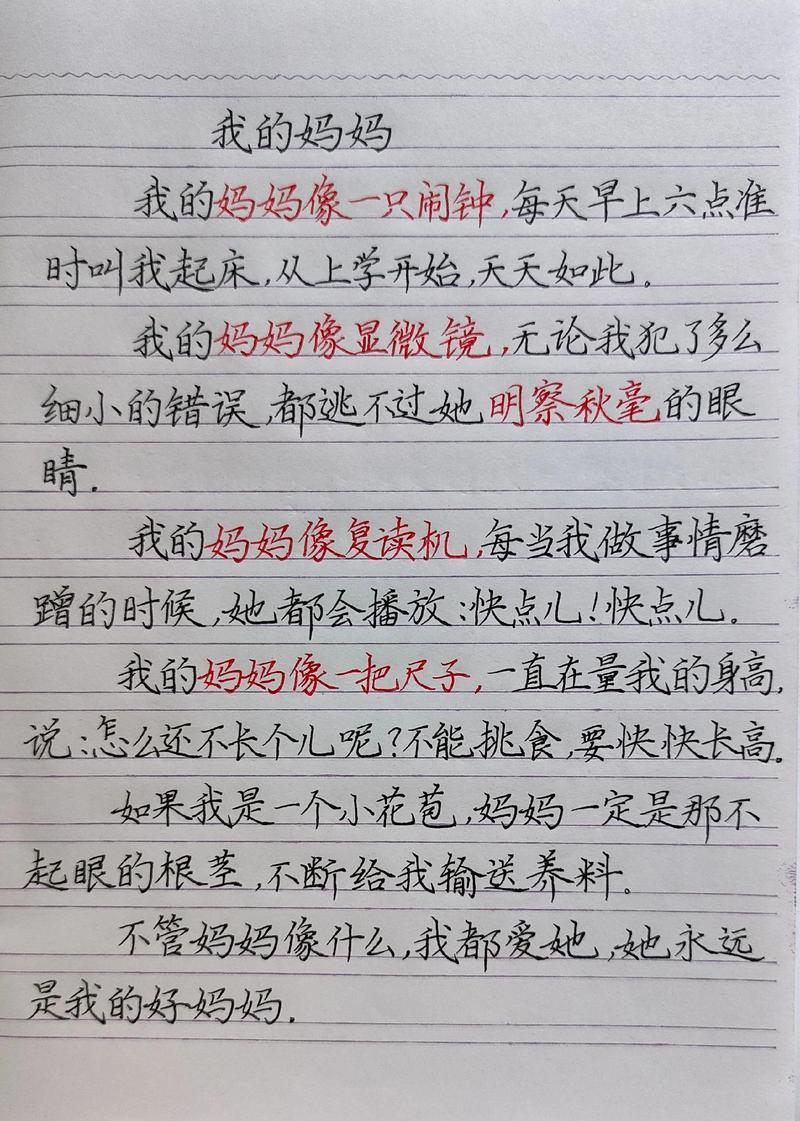 我的妈妈
我的妈妈像一只闹钟,每天早上六点准
时叫我起床,从上学开始,天天如此。
我的妈妈像显微镜,无论我犯了多么
细小的错误,都逃不过她明察秋毫的眼
睛.
我的妈妈像复读机,每当我做事情磨
蹭的时候,她都会播放:快点儿!快点儿。
我的妈妈像一把尺子,一直在量我的身高,
说:怎么还不长个儿呢?不能挑食,要快快长高。
如果我是一个小花苞,妈妈一定是那不
起眼的根茎,不断给我输送养料。
不管妈妈像什么,我都爱她,她永远
是我的好妈妈.